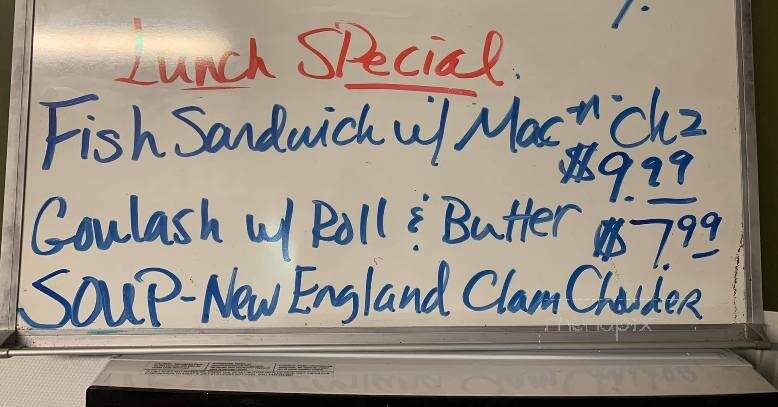 Lunch Special.
Fish Sandwich w/ Mac 'n' Chz
$9.99
Goulash w/ Roll & Butter $7.99
SOUP-New England Clam Chowder
menupix